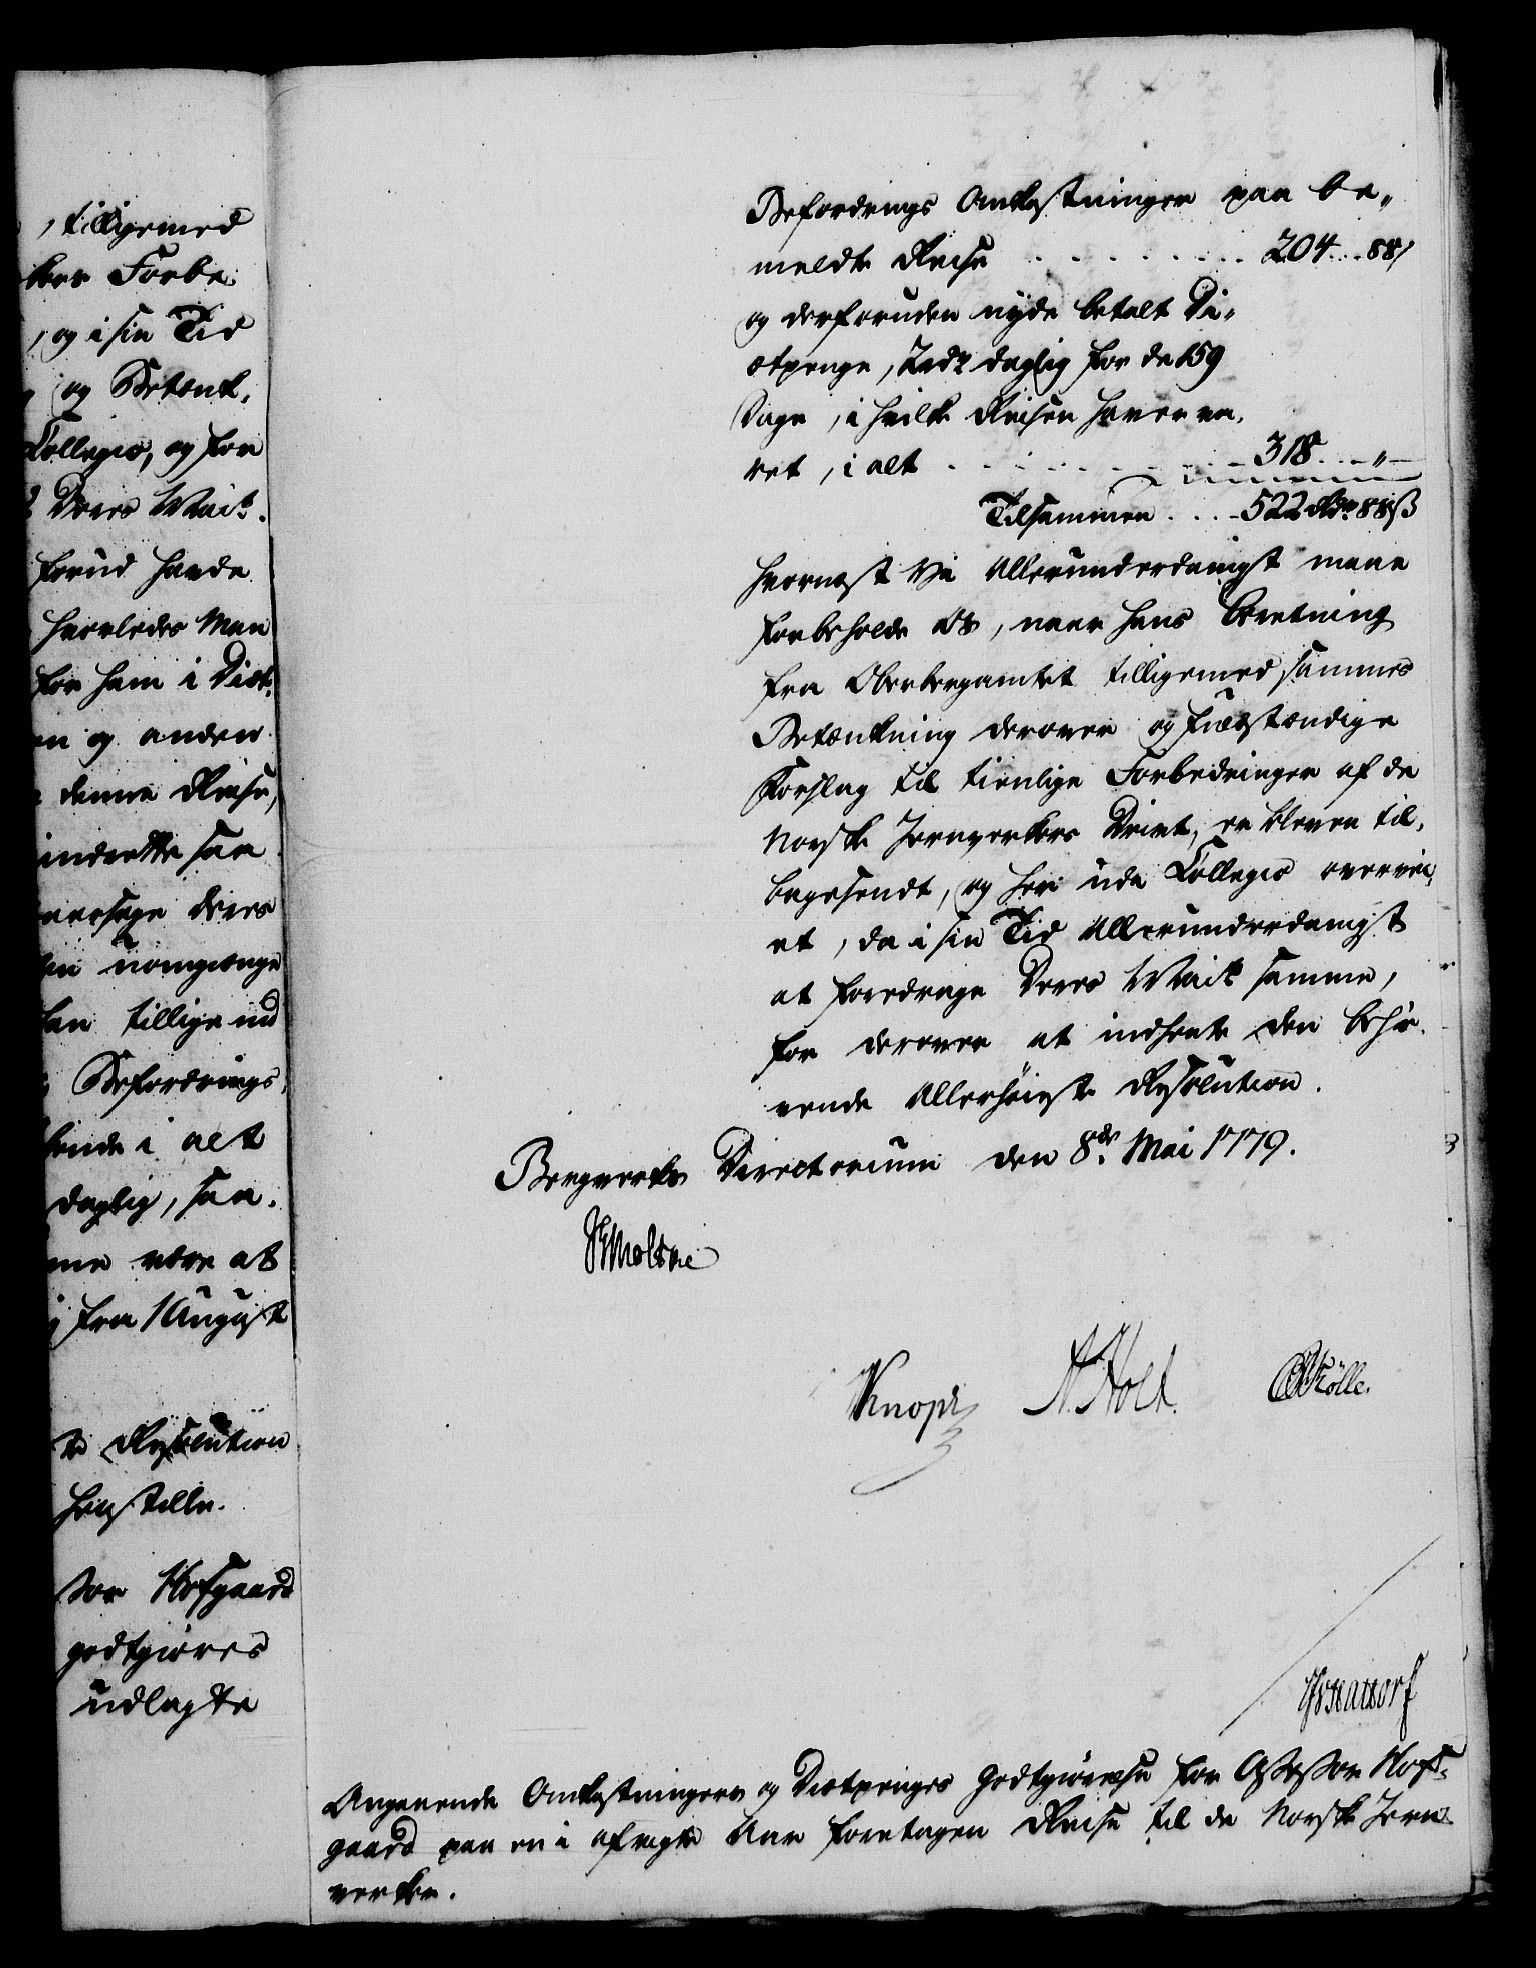 , tilligemed
kers Forbe
, og i sin Tid
og Betænk,
Collegio, og for
Deres Mait.
forud havde
hvorledes Man
for ham i Diæt,
en og anden
denne Reise,
indrette saa
aarsage deres
en uomgænge
han tillige ind
Befordrings,
hende i alt
daglig, saa,
me være at
fra 1 August
te Resolution
henstille.
sor Hofgaard
godtgiøres
udlagte
Befordrings Omkostninger paa be„
meldte Reise . . . . . . . . . 204....88/
og derforuden nyde betalt Di„
ætpenge, 2 rdr daglig for de 159
Dage, i hvilke Reisen haver va,
ret, i alt . . . . . . . . . . 318....„
Tilsammen . . . . 522 Rdr 88ß
hvornest Vi Allerunderdanigst maae
forbeholde Os, naar hans Beretning
fra Oberbergamtet tilligemed sammes
Betænkning derover og fuldstændige
Forslag til tienlige Forbedringer af de
Norske Jernverkers Drivt, er bleven til,
bagesendt, og her udi Collegio overvei,
et, da i sin Tid Allerunderdanigst
at foredrage Deres Mait samme,
for derover at indhente den behø,
vende Allerhøieste Resolution.
Bergverks Directorium den 8de Mai 1779.
Moltke
Knoph
A. Holt.
Rølle.
Angaaende Omkostningers og Diætpenges Godtgiørelse for Assessor Hof-
gaard paa en i afvigte Aar foretagen Reise til de Norske Jern
verker.